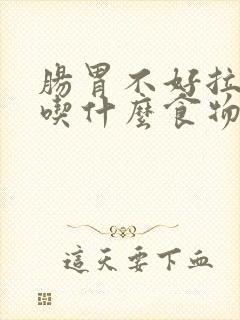 腸胃不好拉
喫什麼食物
這天要下血